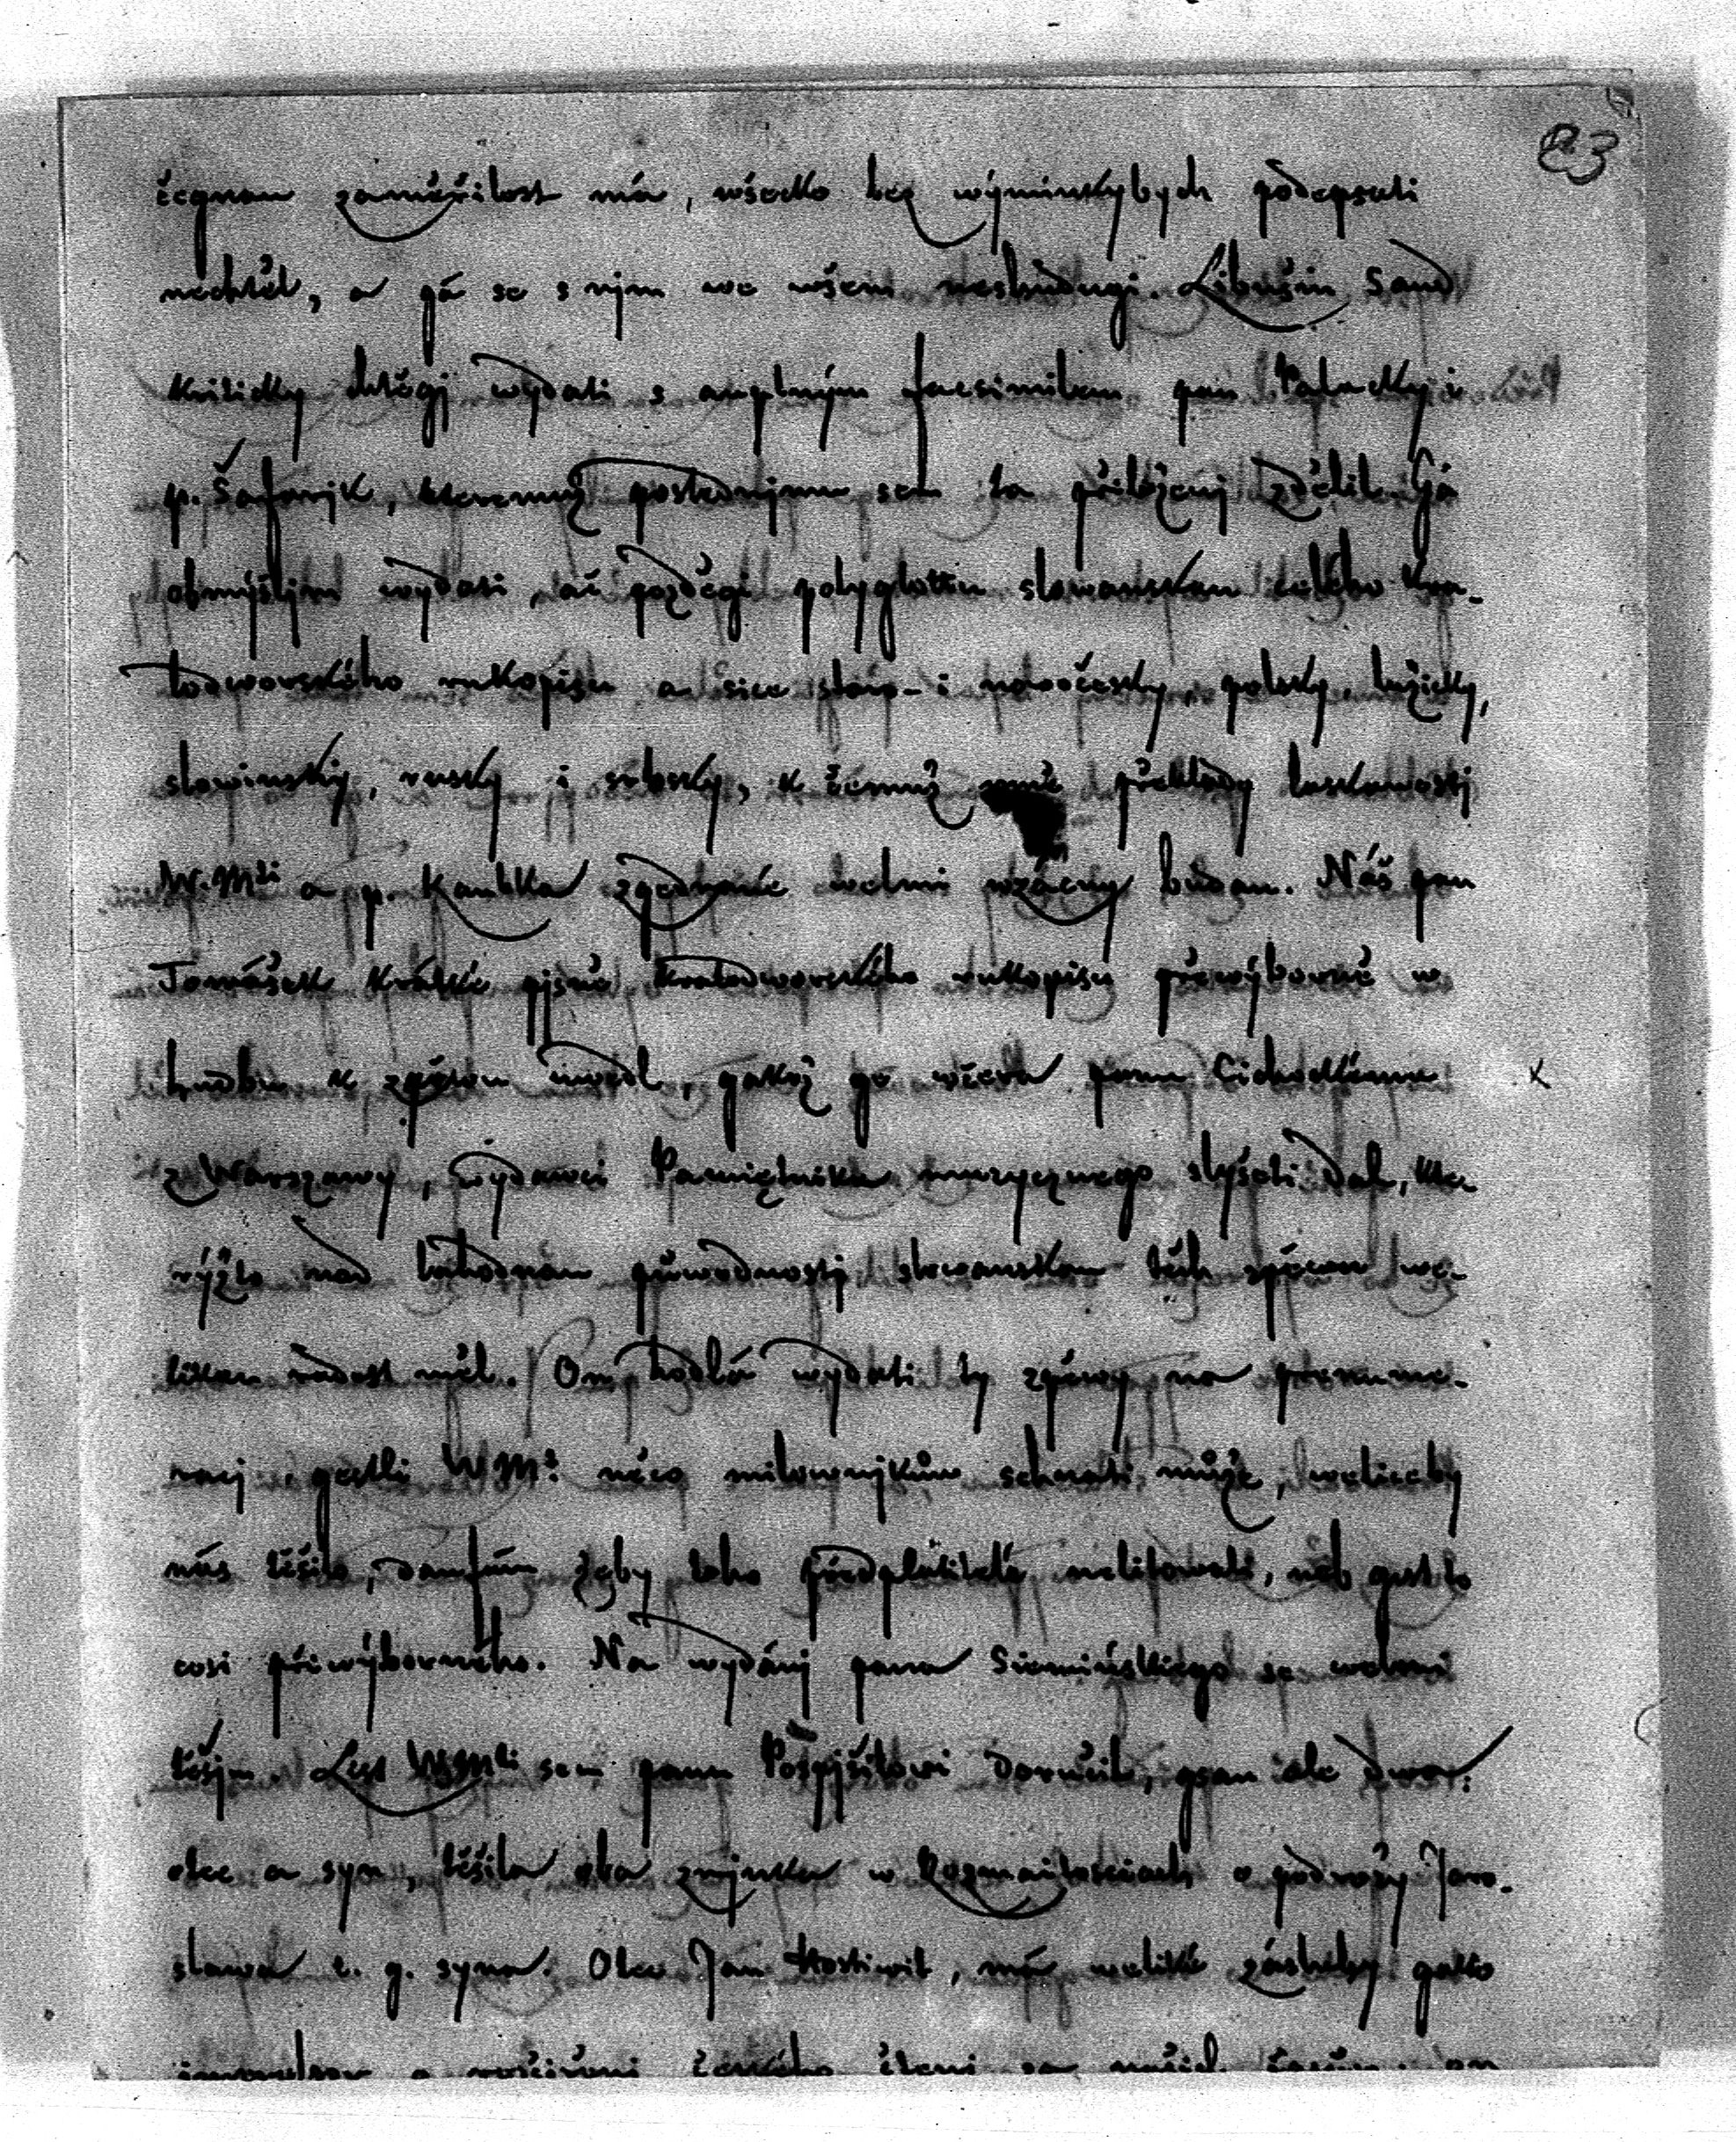 83
čegnau zaměřilost má, wšecko bez wýminkybych podepsati
nechtěl, a gá se s njm we wšem neshodugi. Libušin Saud
kriticky chtěgj wydati s auplným facsimilem pan Palacky i
p. Šafarjk, kteremuž poslednjmu sem ta přiloženj zdělil. Gá
obmýšljm wydati, ač pozděgi polyglottu slowanskau celého Kra-
lodworského rukopisu a sice staro- i nowočesky, polsky, lužicky,
slowinsky, rusky i srbsky, k čemuž mně překlady laskawostj
W.Mti a p. Kaubka zgednané welmi wzácny budau. Náš pan
Tomášek krátké pjsně kralodworského rukopisu přewýborně w
hudbu k zpěwu uwedl, gakož ge wčera panu Cichockému
z Warszawy, wydawci Pamiętnika muzycznego slyšeti dal, kte-
rýžto nad lahodnau půwodnostj slowanskau těch zpěwů we-
likau radost měl. On hodlá wydati ty zpěwy na prenume-
racj, gestli WMt něco milownjkůw sehnati může, welice by
nás těšilo, daufám žeby toho předplatitelé nelitowali, neb gest to
cosi přewýborného. Na wydánj pana Siemińskiego se welmi
těšjm. List WMti sem panu Pospjšilowi doručil, gsau ale dwa:
otec a syn, těšila oba zmjnka w Rozmaitosciach o podrožy Jaro-
slawa t. g. syna. Otec Jan Hostiwit, má weliké zásluhy gako